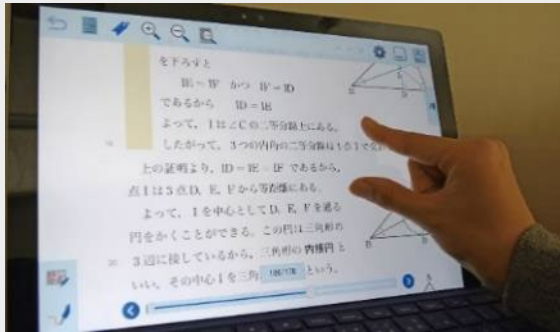 を下ろすと
IE＝IF かつ IF＝ID
であるから ID＝IE
よって，Iは∠Cの二等分線上にある。
したがって，3つの内角の二等分線は1点Iで
上の証明より，ID＝IE＝IF であるから，
点Iは3点D，E，Fから等距離にある。
よって，Iを中心としてD，E，Fを通る
円をかくことができる。この円は三角形の
20 3辺に接しているから，三角形の内接円と
いい，その中心Iを三角 186/178 という。